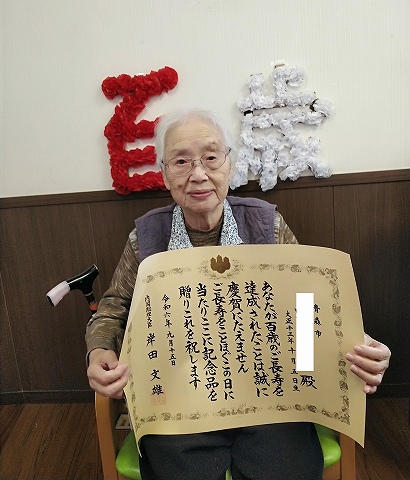 百歳
青森市
殿
大正十三年十月五日生
あなたが百歳のご長寿を
達成されたことは誠に
慶賀にたえません
ご長寿をことほぎこの日に
当たりここに記念品を
贈りこれを祝します
令和六年九月十五日
内閣総理大臣 岸田文雄